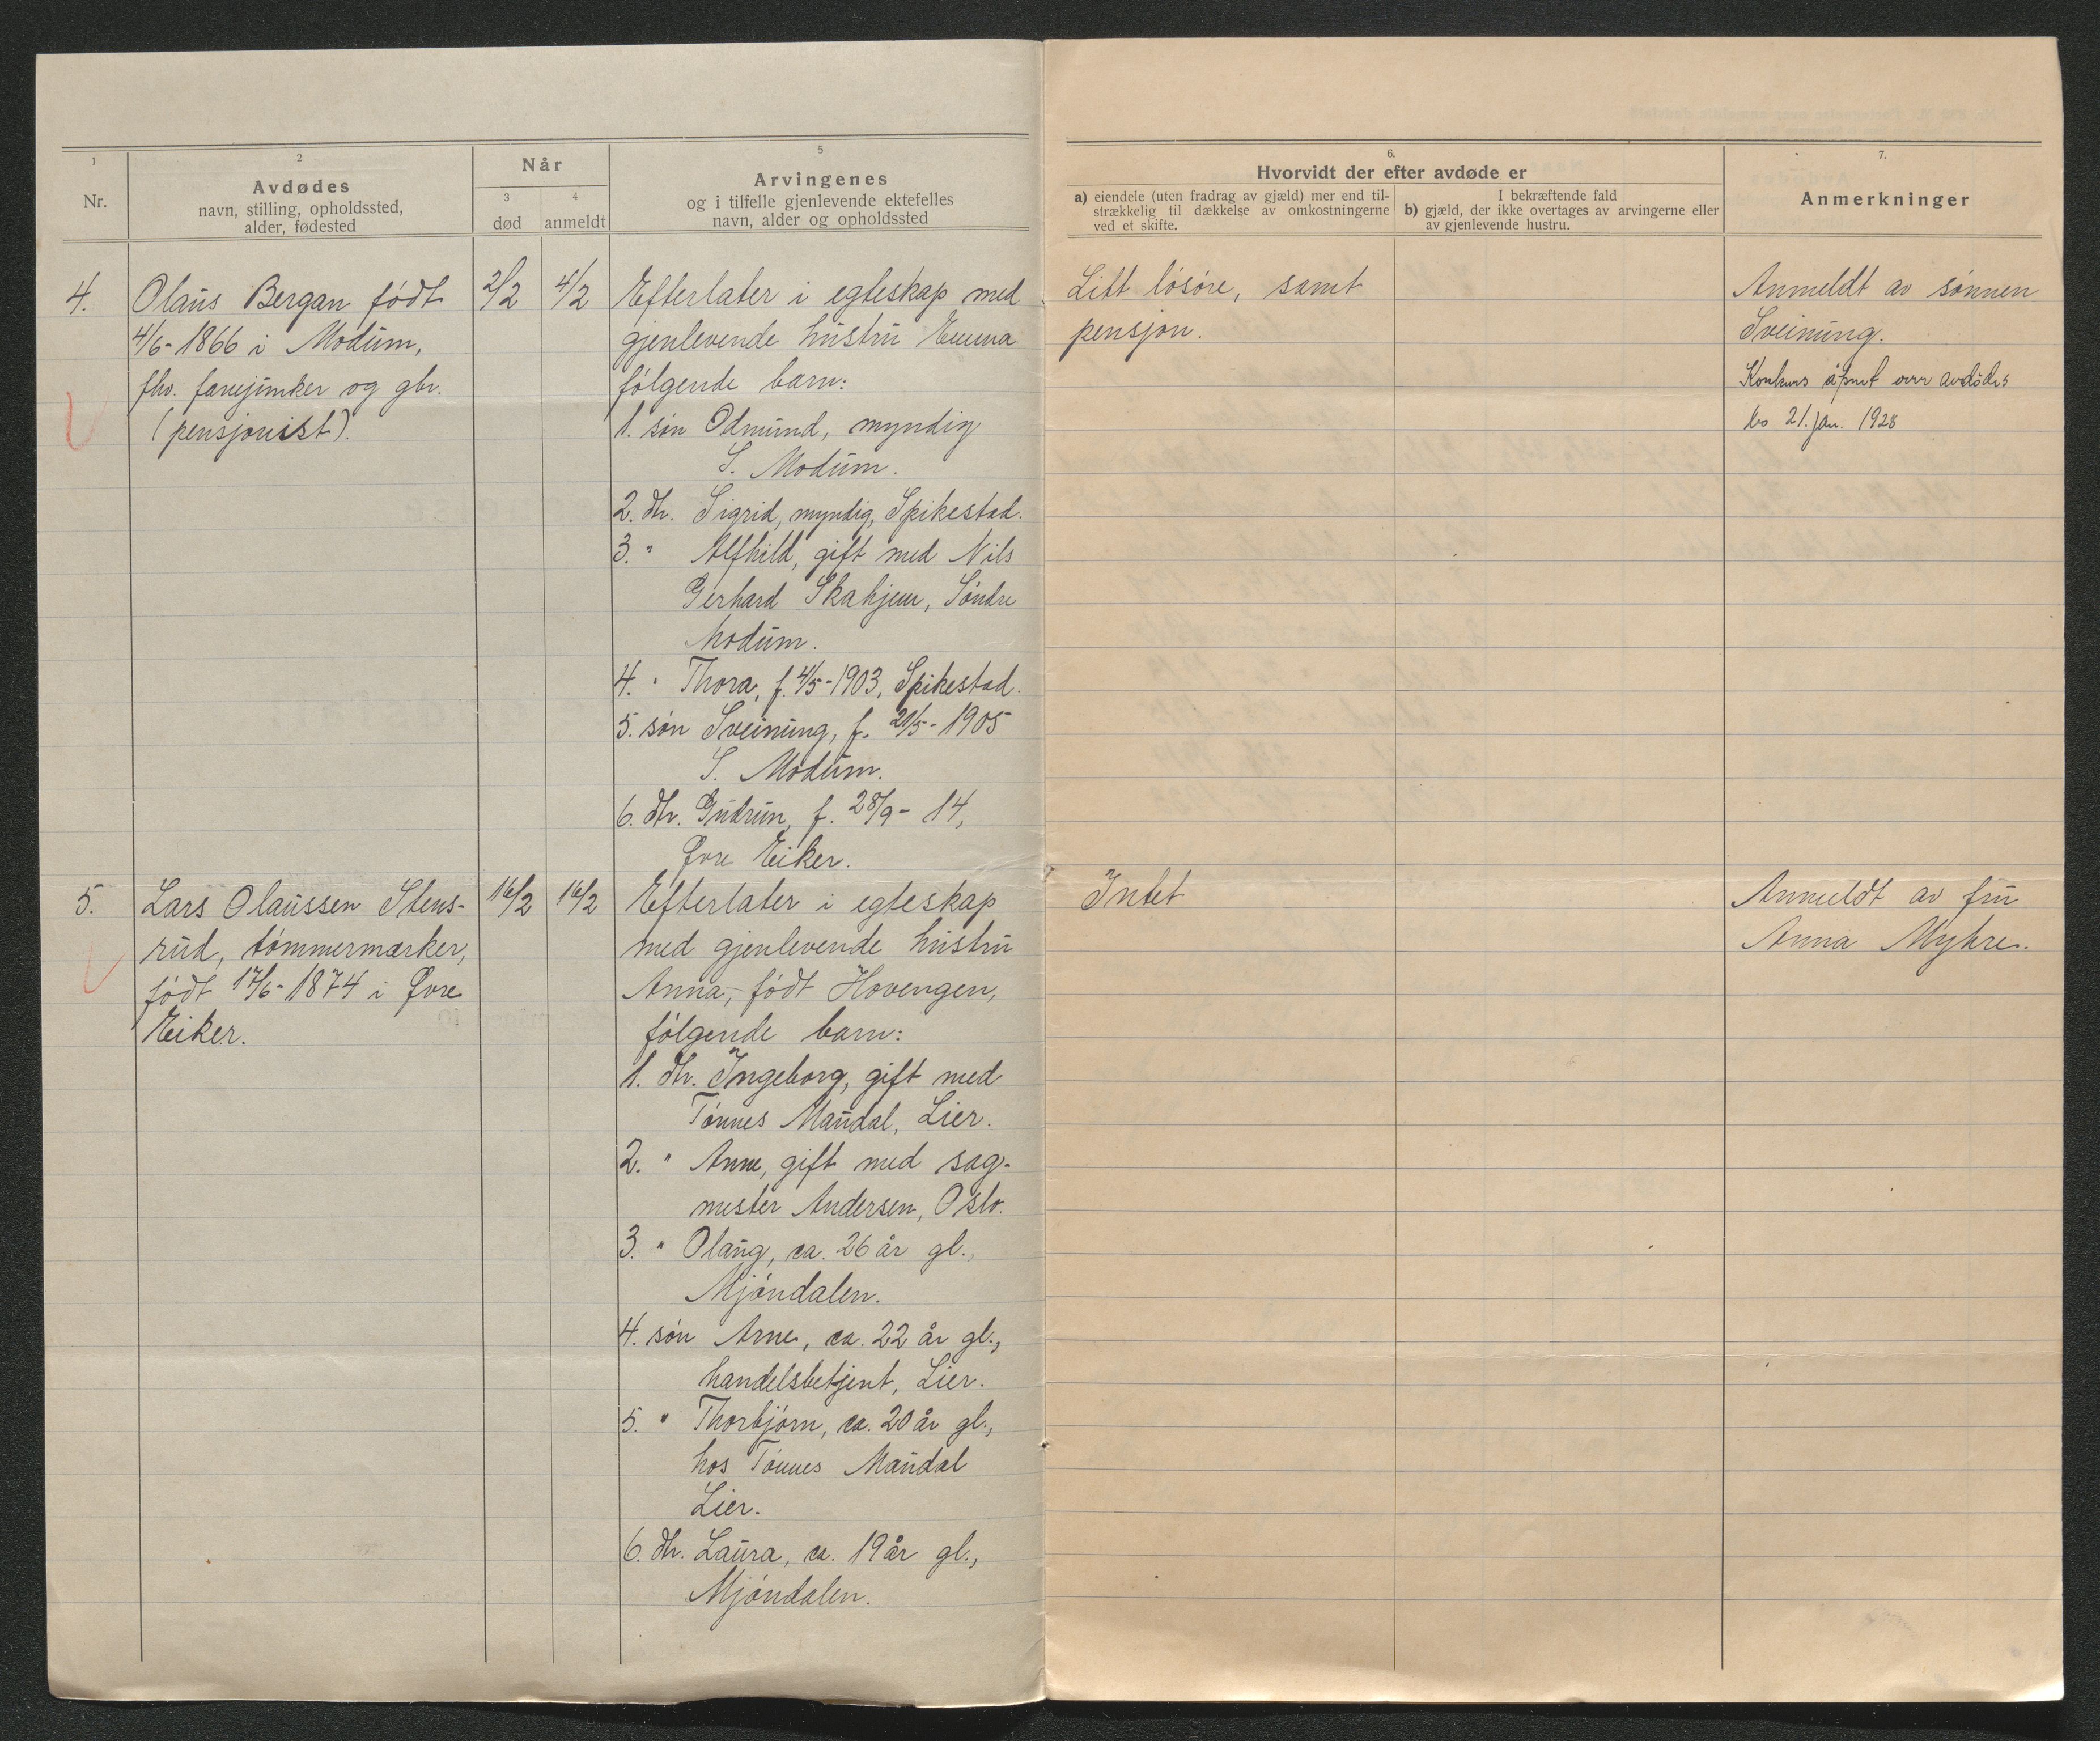 1
Nr.
2
Avdødes
navn, stilling, opholdssted,
alder, fødested
Når
3
død
4
anmeldt
5
Arvingenes
og i tilfelle gjenlevende ektefelles
navn, alder og opholdssted
6.
Hvorvidt der efter avdøde er
a) eiendele (uten fradrag av gjæld) mer end til-
strækkelig til dækkelse av omkostningerne
ved et skifte.
I bekræftende fald
b) gjæld, der ikke overtages av arvingerne eller
av gjenlevende hustru.
7.
Anmerkninger
4.
Olaus Bergan født
4/6-1866 i Modum,
fhv. fanejunker og gbr.
(pensjonist).
2/2
4/2
Efterlater i egteskap med
gjenlevende hustru Emma
følgende barn:
1. søn Odmund, myndig
S. Modum.
2. dtr. Sigrid, myndig, Spikestad.
3. " Alfhild, gift med Nils
Gerhard Skahjem, Søndre
Modum.
4. " Thora, f. 4/5-1903, Spikestad.
5. søn Sveinung, f. 21/5-1905
S. Modum.
6. dtr. Gudrun, f. 28/9-14,
Øvre Eiker.
Litt løsøre, samt
pensjon.
Anmeldt av sønnen
Sveinung.
Konkurs åpnet over avdødes
bo 21. jan. 1928
5.
Lars Olaussen Stens-
rud, tømmermærker,
født 17/6-1874 i Øvre
Eiker.
14/2
14/2
Efterlater i egteskap
med gjenlevende hustru
Anna, født Hovengen,
følgende barn:
1. dtr. Ingeborg, gift med
Tønnes Maudal, Lier.
2. " Anne, gift med sag-
mester Andersen, Oslo.
3. " Olaug, ca. 26 år gl.,
Mjøndalen.
4. søn Arne, ca. 22 år gl.,
handelsbetjent, Lier.
5. " Thorbjørn, ca. 20 år gl.,
hos Tønnes Maudal
Lier.
6. dtr. Laura, ca. 19 år gl.,
Mjøndalen.
Intet
Anmeldt av fru
Anna Myhre.